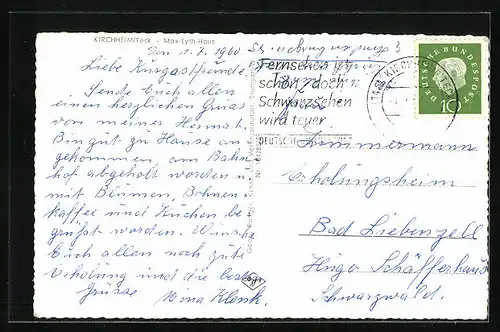 KIRCHHEIM/Teck - Max-Eyth-Haus
Den 1.7.1960
Liebe Kurgastfreunde.
Sende Euch allen
einen herzlichen Gruss
von meiner Heimat.
Bin gut zu Hause an
gekommen am Bahn
hof abgeholt worden u.
mit Blumen, Bohnen
kaffee und Kuchen be
grüsst worden. Wünsche
Euch allen noch gute
Erholung und die besten
Grüsse
Mina Klenk.
Fernsehen ist
schön, doch
Schwarzsehen
wird teuer
DEUTSCHE
KIRCH
DEUTSCHE BUNDESPOST
10
Zimmermann
Erholungsheim
Bad Liebenzell
Hugo Schäfferhaus
Schwarzwald.